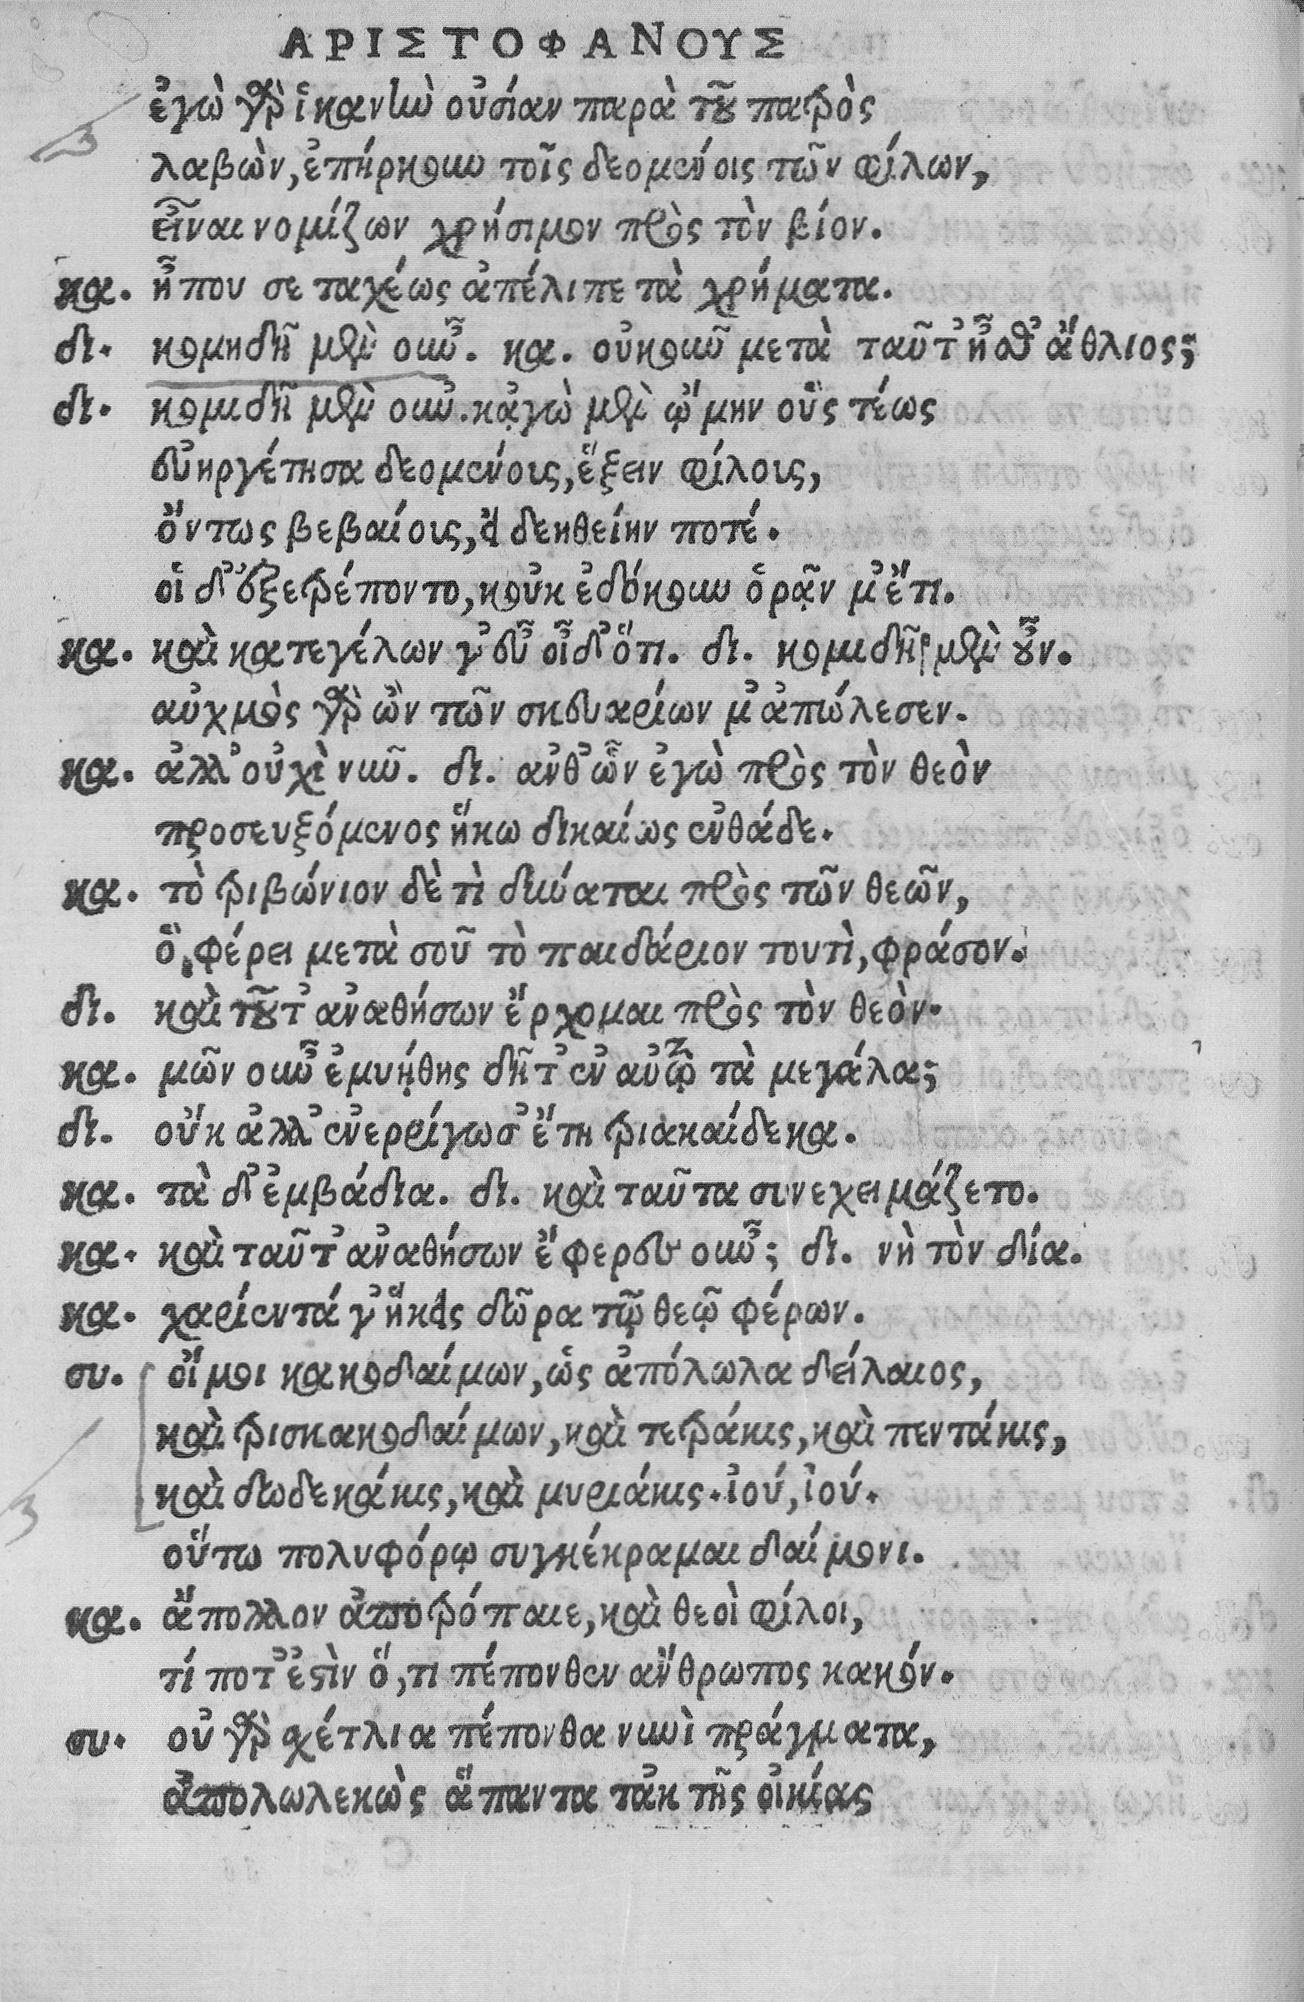 ΑΡΙΣΤΟΦΑΝΟΥΣ
ἐγὼ γὰρ ἱκανὴν οὐσίαν παρὰ τοῦ πατρὸς
λαβὼν, ἐπήρκουν τοῖς δεομένοις τῶν φίλων,
εἶναι νομίζων χρήσιμον πρὸς τὸν βίον.
κα. ἦπου σε ταχέως ἀπέλιπε τὰ χρήματα.
δι. κομηδῆ μὲν οὖν. κα. οὐκοῦν μετὰ ταῦτ' ἦσθ' ἄθλιος;
δι. κομιδῆ μὲν οὖν. κᾀγὼ μὲν ᾤμην οὓς τέως
εὐηργέτησα δεομένοις, ἕξειν φίλοις,
ὄντως βεβαίοις, εἰ δεηθείην ποτέ.
οἱ δ' ἐξετρέποντο, κοὐκ ἐδόκουν ὁρᾷν μ' ἔτι.
κα. καὶ κατεγέλων γ' εὖ οἶδ' ὅτι. δι. κομιδῆ μὲν οὖν.
αὐχμὸς γὰρ ὢν τῶν σκευαρίων μ' ἀπώλεσεν.
κα. ἀλλ' οὐχὶ νῦν. δι. ἀνθ' ὧν ἐγὼ πρὸς τὸν θεὸν
προσευξόμενος ἥκω δικαίως ἐνθάδε.
κα. τὸ τριβώνιον δὲ τὶ δύναται πρὸς τῶν θεῶν,
ὃ, φέρει μετὰ σοῦ τὸ παιδάριον τουτὶ, φράσον.
δι. καὶ τοῦτ' ἀναθήσων ἔρχομαι πρὸς τὸν θεὸν.
κα. μῶν οὖν ἐμυήθης δῆτ' ἐν αὐτῷ τὰ μεγάλα;
δι. οὔκ ἀλλ' ἐνερρίγωσ' ἔτη τριακαίδεκα.
κα. τὰ δ' ἐμβάδια. δι. καὶ ταῦτα συνεχειμάζετο.
κα. καὶ ταῦτ' ἀναθήσων ἔφερευ οὖν; δι. νὴ τὸν δία.
κα. χαρίεντά γ' ἥκεις δῶρα τῷ θεῷ φέρων.
συ. οἴμοι κακοδαίμων, ὡς ἀπόλωλα δείλαιος,
καὶ τρισκακοδαίμων, καὶ τετράκις, καὶ πεντάκις,
καὶ δωδεκάκις, καὶ μυριάκις. ἰού, ἰού.
οὕτω πολυφόρῳ συγκέκραμαι δαίμονι.
κα. ἄπολλον ἀποτρόπαιε, καὶ θεοὶ φίλοι,
τί ποτ' ἐστὶν ὅ, τι πέπονθεν ἄνθρωπος κακόν.
συ. οὐ γὰρ σχέτλια πέπονθα νυνὶ πράγματα,
ἀπολωλεκὼς ἅπαντα τἀκ τῆς οἰκίας